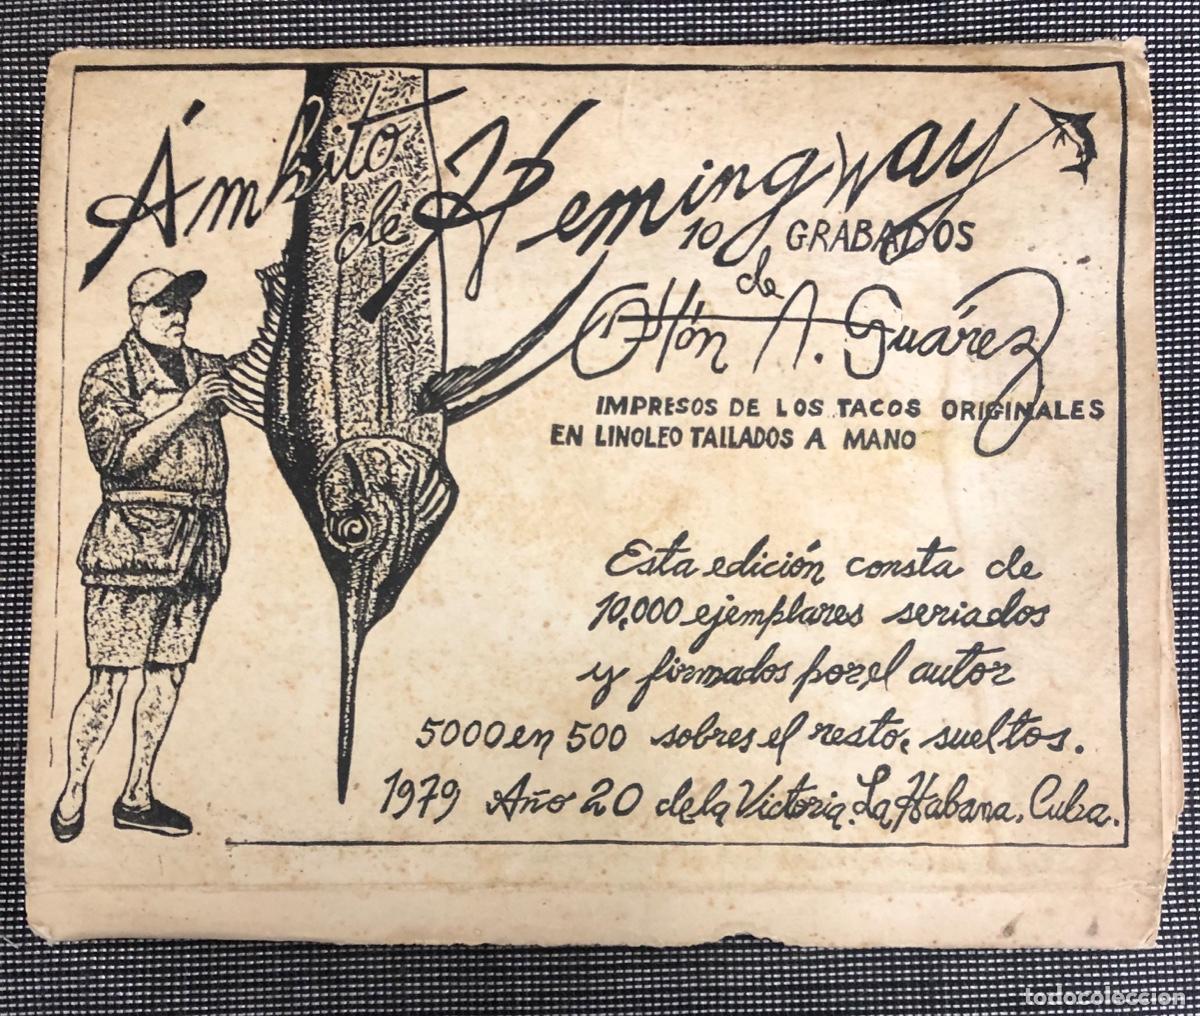 Ámbito de Hemingway
10 GRABADOS
de
Othón A. Suárez
IMPRESOS DE LOS TACOS ORIGINALES
EN LINOLEO TALLADOS A MANO
Esta edición consta de
10,000 ejemplares seriados
y firmados por el autor
5000 en 500 sobres el resto, sueltos.
1979 Año 20 de la Victoria. La Habana, Cuba.
todocoleccion